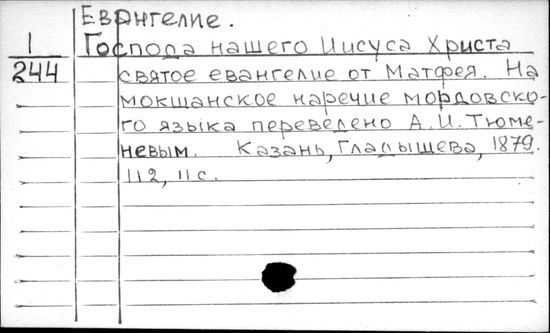 Евангелие.
1
244
Господа нашего Иисуса Христа
святое евангелие от Матфея. На
мокшанское наречие мордовско-
го языка переведено А.И. Тюме-
невым. Казань, Гладышева, 1879.
112, 11 с.